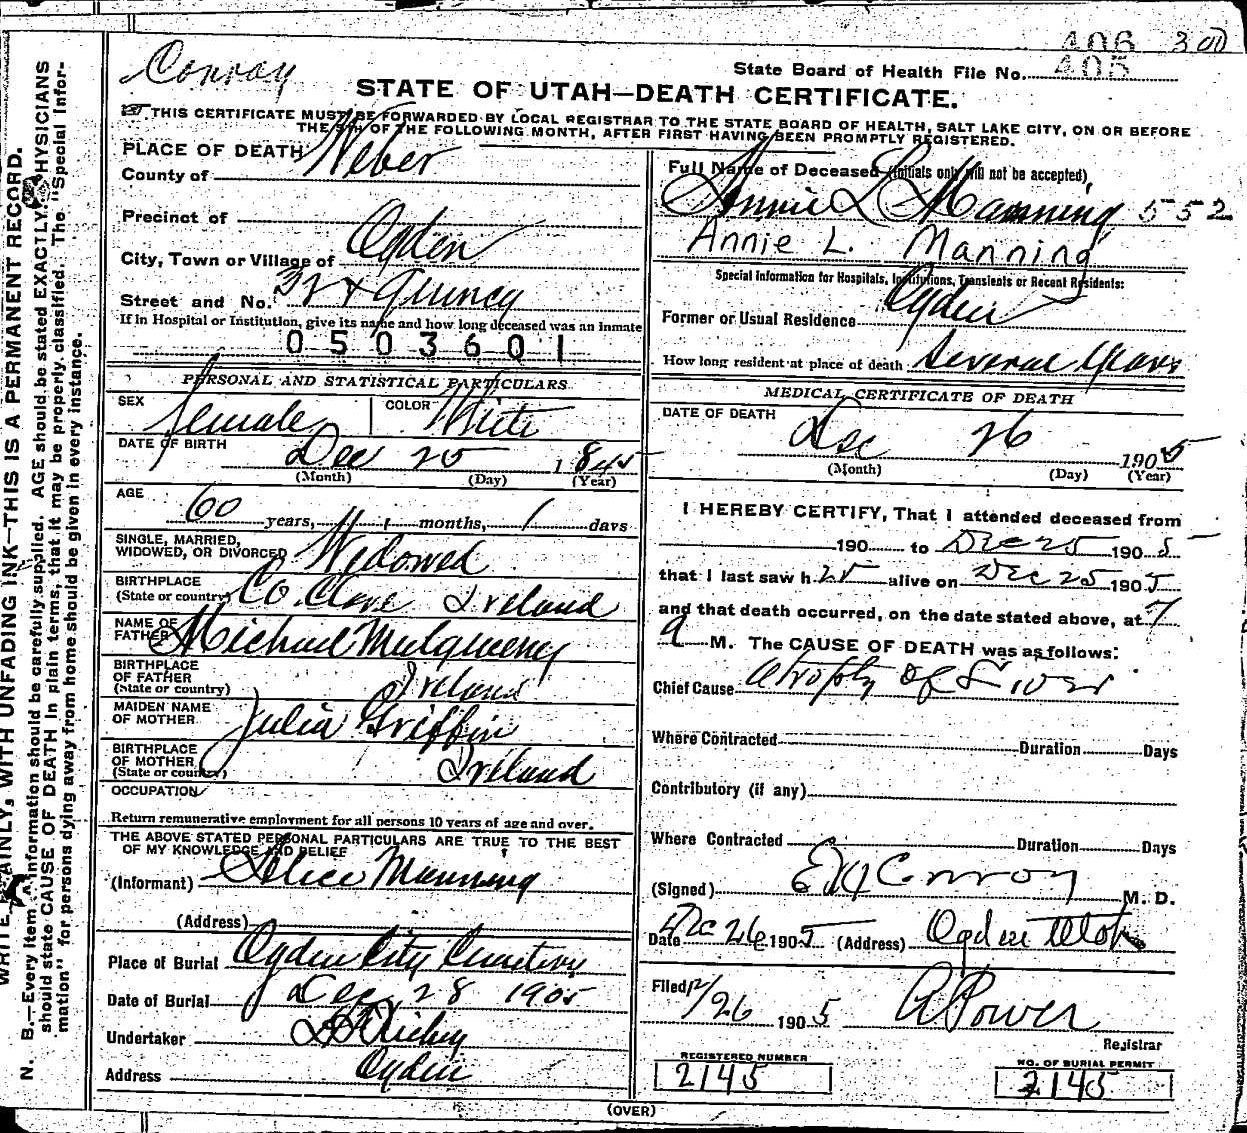 406 300
405
Conroy
State Board of Health File No.
STATE OF UTAH—DEATH CERTIFICATE.
THIS CERTIFICATE MUST BE FORWARDED BY LOCAL REGISTRAR TO THE STATE BOARD OF HEALTH, SALT LAKE CITY, ON OR BEFORE
THE 5TH OF THE FOLLOWING MONTH, AFTER FIRST HAVING BEEN PROMPTLY REGISTERED.
PLACE OF DEATH
County of Weber
Precinct of
City, Town or Village of Ogden
Street and No. 32 & Quincy
If in Hospital or Institution, give its name and how long deceased was an inmate
0503601
PERSONAL AND STATISTICAL PARTICULARS
SEX female COLOR White
DATE OF BIRTH Dec 25 1845
(Month) (Day) (Year)
AGE 60 years, months, 1 days
SINGLE, MARRIED,
WIDOWED, OR DIVORCED Widowed
BIRTHPLACE
(State or country) Co. Clare Ireland
NAME OF
FATHER Michael Mulqueeny
BIRTHPLACE
OF FATHER
(State or country) Ireland
MAIDEN NAME
OF MOTHER Julia Griffin
BIRTHPLACE
OF MOTHER
(State or country) Ireland
OCCUPATION
Return remunerative employment for all persons 10 years of age and over.
THE ABOVE STATED PERSONAL PARTICULARS ARE TRUE TO THE BEST
OF MY KNOWLEDGE AND BELIEF
(Informant) Alice Manning
(Address)
Place of Burial Ogden City Cemetery
Date of Burial Dec 28 1905
Undertaker Richey
Address Ogden
Full Name of Deceased (Initials only will not be accepted)
Annie L Manning 552
Annie L. Manning
Special Information for Hospitals, Institutions, Transients or Recent Residents:
Former or Usual Residence Ogden
How long resident at place of death Several Years
MEDICAL CERTIFICATE OF DEATH
DATE OF DEATH
Dec 26 1905
(Month) (Day) (Year)
I HEREBY CERTIFY, That I attended deceased from
190 to Dec 25 1905
that I last saw h er alive on Dec 25 1905
and that death occurred, on the date stated above, at 7
a M. The CAUSE OF DEATH was as follows:
Chief Cause atrophy of Liver
Where Contracted Duration Days
Contributory (if any)
Where Contracted Duration Days
(Signed) Conroy M. D.
Date Dec 26 1905 (Address) Ogden Utah
Filed 12/26 1905 A Power
Registrar
REGISTERED NUMBER NO. OF BURIAL PERMIT
2145 2145
(OVER)
WRITE PLAINLY, WITH UNFADING INK—THIS IS A PERMANENT RECORD.
N. B.—Every item of information should be carefully supplied. AGE should be stated EXACTLY. PHYSICIANS
should state CAUSE OF DEATH in plain terms, that it may be properly classified. The "Special Infor-
mation" for persons dying away from home should be given in every instance.